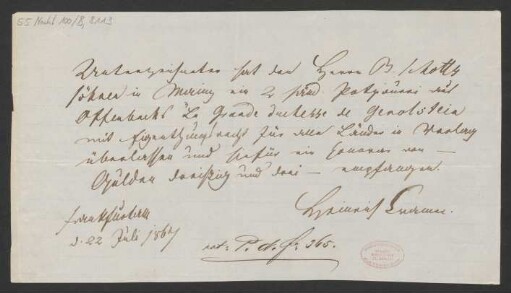 55 Nachl 100/B,
Unterzeichneter hat den Herrn B. Schott's
Söhne in Mainz ein 2 händ. Potpourri aus
Offenbachs "La Grande Duchesse de Gerolstein
mit Eigenthumsrecht für alle Länder in Verlag
überlassen und hiefür ein Honorar von —
Gulden dreißig und drei — empfangen.
Heinrich Cramer.
Frankfurt a/M
d. 22 Juli 1867